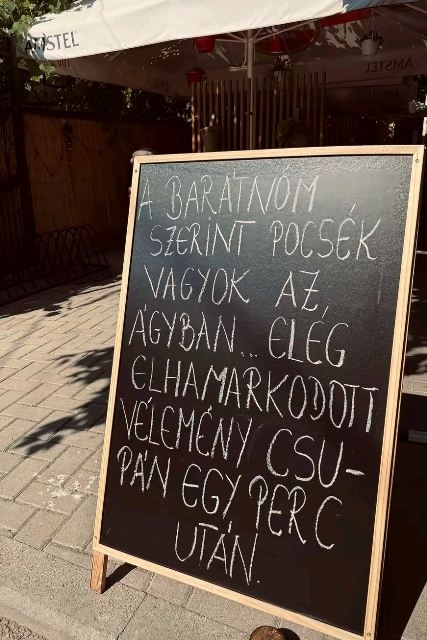 AMSTEL
AMSTEL
A BARÁTNŐM
SZERINT POCSÉK
VAGYOK AZ
ÁGYBAN... ELÉG
ELHAMARKODOTT
VÉLEMÉNY CSU-
PÁN EGY PERC
UTÁN.